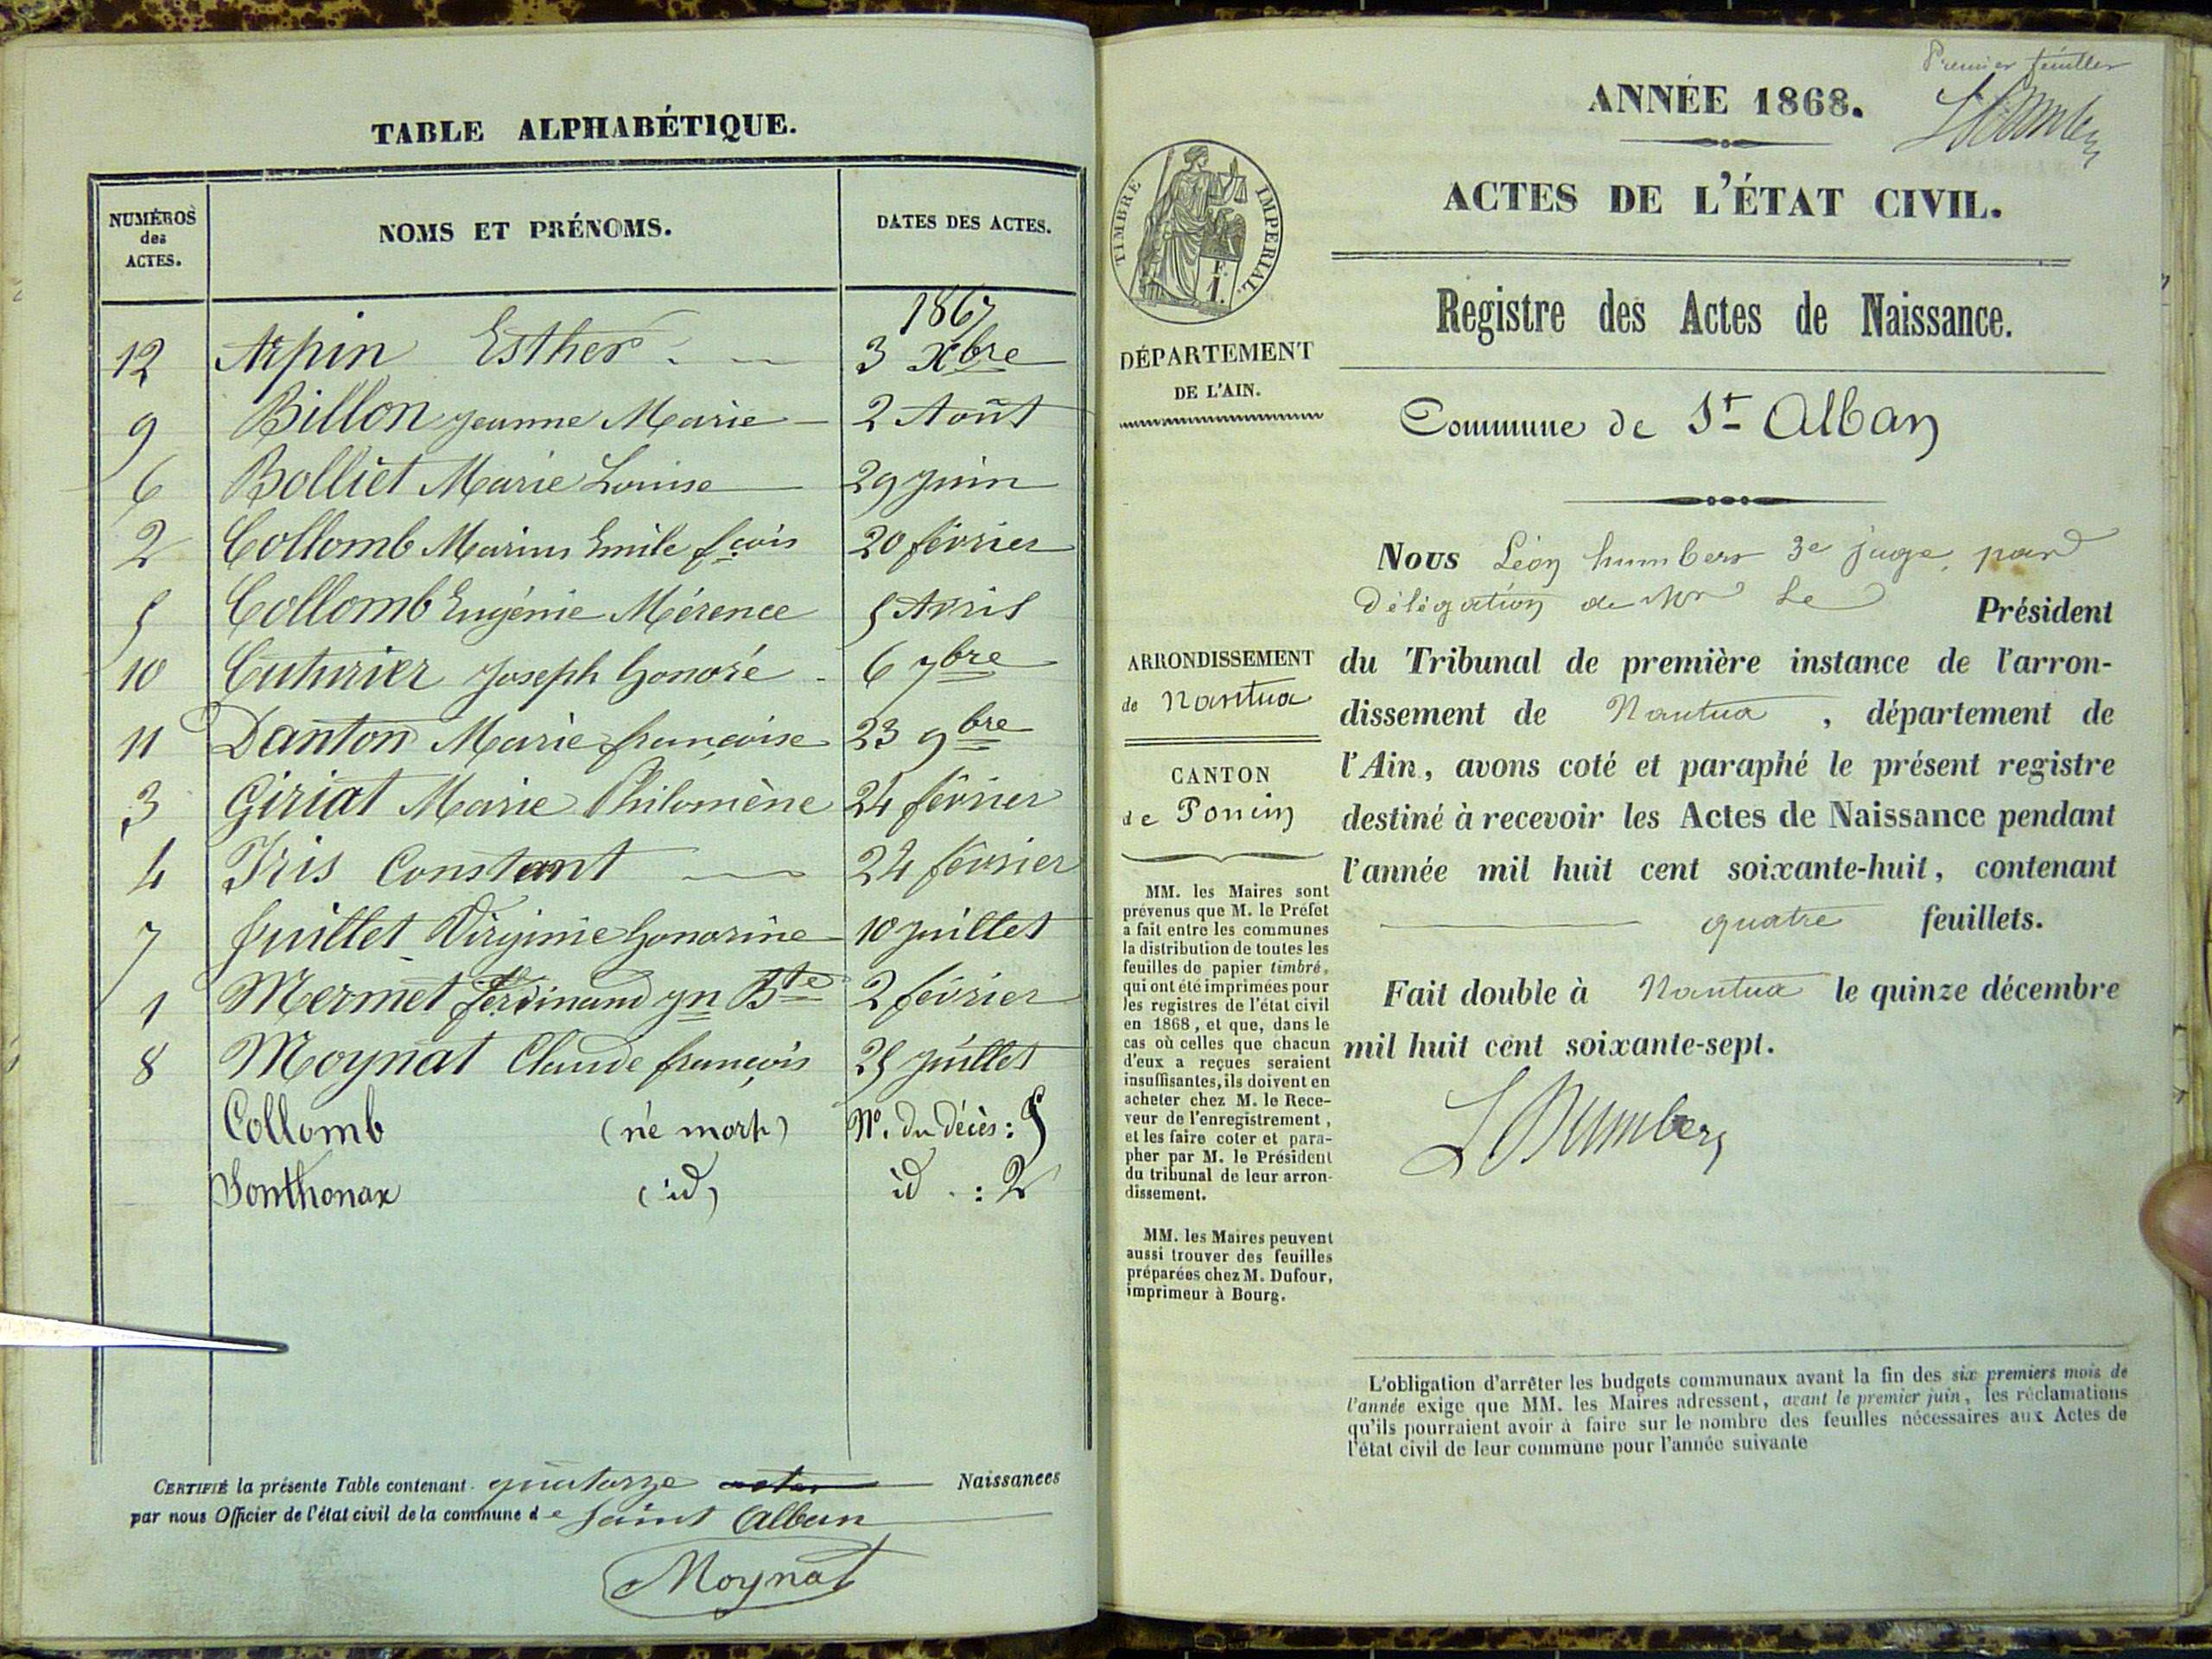 TABLE ALPHABÉTIQUE.
NUMÉROS des ACTES.
NOMS ET PRÉNOMS.
DATES DES ACTES.
1867
12 Arpin Esther 3 Xbre
9 Billon Jeanne Marie 2 Août
6 Bolliet Marie Louise 29 Juin
2 Collomb Marius Emile fçois 20 février
5 Collomb Eugénie Mérence 5 Avril
10 Cuturier Joseph honoré 6 7bre
11 Danton Marie françoise 23 9bre
3 Giriat Marie Philomène 24 février
4 Iris Constant 24 février
7 Juillet Virginie honorine 10 Juillet
1 Mermet ferdinand Jn Bte 2 février
8 Moynat Claude françois 25 Juillet
Collomb (né mort) No. du décès : 5
Sonthonax (id) id. : 2
CERTIFIÉ la présente Table contenant quatorze actes Naissances
par nous Officier de l'état civil de la commune de Saint Alban
Moynat
Premier feuillet
LHumbert
ANNÉE 1868.
ACTES DE L'ÉTAT CIVIL.
TIMBRE IMPERIAL
1 F.
Registre des Actes de Naissance.
DÉPARTEMENT
DE L'AIN.
Commune de St Alban
Nous Léon humbert 3e juge, par
délégation de Mr Le Président
du Tribunal de première instance de l'arron-
dissement de Nantua, département de
l'Ain, avons coté et paraphé le présent registre
destiné à recevoir les Actes de Naissance pendant
l'année mil huit cent soixante-huit, contenant
quatre feuillets.
Fait double à Nantua le quinze décembre
mil huit cent soixante-sept.
LHumbert
ARRONDISSEMENT
de Nantua
CANTON
de Poncin
MM. les Maires sont
prévenus que M. le Préfet
a fait entre les communes
la distribution de toutes les
feuilles de papier timbré,
qui ont été imprimées pour
les registres de l'état civil
en 1868, et que, dans le
cas où celles que chacun
d'eux a reçues seraient
insuffisantes, ils doivent en
acheter chez M. le Rece-
veur de l'enregistrement,
et les faire coter et para-
pher par M. le Président
du tribunal de leur arron-
dissement.
MM. les Maires peuvent
aussi trouver des feuilles
préparées chez M. Dufour,
imprimeur à Bourg.
L'obligation d'arrêter les budgets communaux avant la fin des six premiers mois de
l'année exige que MM. les Maires adressent, avant le premier juin, les réclamations
qu'ils pourraient avoir à faire sur le nombre des feuilles nécessaires aux Actes de
l'état civil de leur commune pour l'année suivante